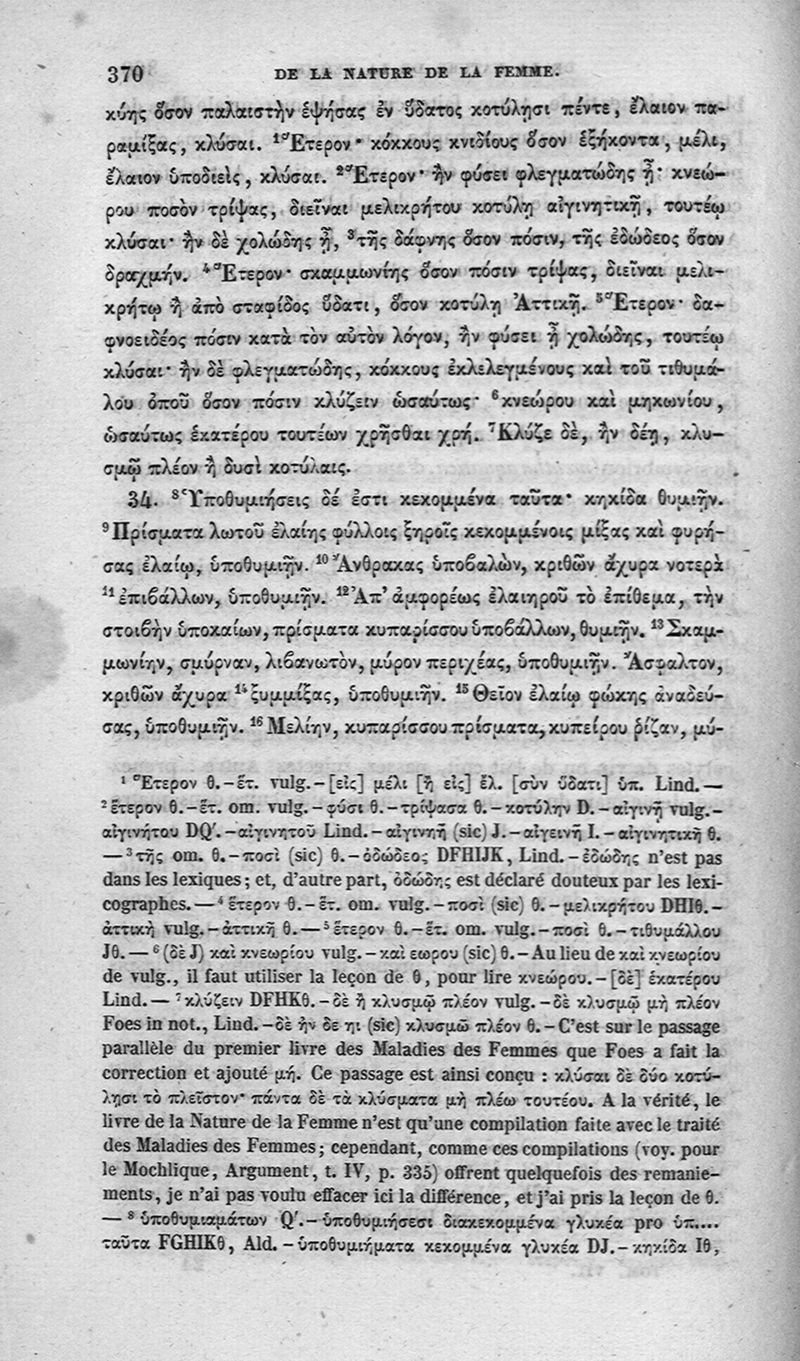 370 DE LA NATURE DE LA FEMME.
κύης ὅσον παλαιστὴν ἑψήσας ἐν ὕδατος κοτύλῃσι πέντε, ἔλαιον πα-
ραμίξας, κλύσαι. ¹Ἕτερον· κόκκους κνιδίους ὅσον ἑξήκοντα, μέλι,
ἔλαιον ὑποδιεὶς, κλύσαι. ²Ἕτερον· ἢν φύσει φλεγματώδης ᾖ· κνεώ-
ρου ποσὸν τρίψας, διεῖναι μελικρήτου κοτύλῃ αἰγινητικῇ, τουτέῳ
κλύσαι· ἢν δὲ χολώδης ᾖ, ³τῆς δάφνης ὅσον πόσιν, τῆς ἐδώδεος ὅσον
δραχμήν. ⁴Ἕτερον· σκαμμωνίης ὅσον πόσιν τρίψας, διεῖναι μελι-
κρήτῳ ἢ ἀπὸ σταφίδος ὕδατι, ὅσον κοτύλῃ Ἀττικῇ. ⁵Ἕτερον· δα-
φνοειδέος πόσιν κατὰ τὸν αὐτὸν λόγον, ἢν φύσει ᾖ χολώδης, τουτέῳ
κλύσαι· ἢν δὲ φλεγματώδης, κόκκους ἐκλελεγμένους καὶ τοῦ τιθυμά-
λου ὀποῦ ὅσον πόσιν κλύζειν ὡσαύτως· ⁶κνεώρου καὶ μηκωνίου,
ὡσαύτως ἑκατέρου τουτέων χρῆσθαι χρή. ⁷Κλύζε δὲ, ἢν δέῃ, κλυ-
σμῷ πλέον ἢ δυσὶ κοτύλαις.
34. ⁸Ὑποθυμιήσεις δέ ἐστι κεκομμένα ταῦτα· κηκίδα θυμιῇν.
⁹Πρίσματα λωτοῦ ἐλαίης φύλλοις ξηροῖς κεκομμένοις μίξας καὶ φυρή-
σας ἐλαίῳ, ὑποθυμιῇν. ¹⁰Ἄνθρακας ὑποβαλὼν, κριθῶν ἄχυρα νοτερὰ
¹¹ἐπιβάλλων, ὑποθυμιῇν. ¹²Ἀπ' ἀμφορέως ἐλαιηροῦ τὸ ἐπίθεμα, τὴν
στοιβὴν ὑποκαίων, πρίσματα κυπαρίσσου ὑποβάλλων, θυμιῇν. ¹³Σκαμ-
μωνίην, σμύρναν, λιβανωτὸν, μύρον περιχέας, ὑποθυμιῇν. Ἄσφαλτον,
κριθῶν ἄχυρα ¹⁴ξυμμίξας, ὑποθυμιῇν. ¹⁵Θεῖον ἐλαίῳ φώκης ἀναδεύ-
σας, ὑποθυμιῇν. ¹⁶Μελίην, κυπαρίσσου πρίσματα, κυπείρου ῥίζαν, μύ-
¹ Ἕτερον θ.–ἕτ. vulg.–[εἰς] μέλι [ἢ εἰς] ἔλ. [σὺν ὕδατι] ὑπ. Lind.—
² ἕτερον θ.–ἕτ. om. vulg.–φύσι θ.–τρίψασα θ.–κοτύλην D.–αἰγινῇ vulg.–
αἰγινήτου DQ'.–αἰγινητοῦ Lind.–αἰγινηῇ (sic) J.–αἰγεινῇ I.–αἰγινητικῇ θ.
—³ τῆς om. θ.–ποσὶ (sic) θ.–ὀδώδεος DFHIJK, Lind.–ἐδώδης n'est pas
dans les lexiques; et, d'autre part, ὀδώδης est déclaré douteux par les lexi-
cographes.—⁴ ἕτερον θ.–ἕτ. om. vulg.–ποσὶ (sic) θ.–μελικρήτου DHIθ.–
ἀττικὴ vulg.–ἀττικῇ θ.—⁵ ἕτερον θ.–ἕτ. om. vulg.–ποσὶ θ.–τιθυμάλλου
Jθ.—⁶ (δὲ J) καὶ κνεωρίου vulg.–καὶ εωρου (sic) θ.–Au lieu de καὶ κνεωρίου
de vulg., il faut utiliser la leçon de θ, pour lire κνεώρου.–[δὲ] ἑκατέρου
Lind.—⁷ κλύζειν DFHKθ.–δὲ ἢ κλυσμῷ πλέον vulg.–δὲ κλυσμῷ μὴ πλέον
Foes in not., Lind.–δὲ ἢν δε ηι (sic) κλυσμῶ πλέον θ.–C'est sur le passage
parallèle du premier livre des Maladies des Femmes que Foes a fait la
correction et ajouté μή. Ce passage est ainsi conçu : κλύσαι δὲ δύο κοτύ-
λῃσι τὸ πλεῖστον· πάντα δὲ τὰ κλύσματα μὴ πλέω τουτέου. A la vérité, le
livre de la Nature de la Femme n'est qu'une compilation faite avec le traité
des Maladies des Femmes; cependant, comme ces compilations (voy. pour
le Mochlique, Argument, t. IV, p. 335) offrent quelquefois des remanie-
ments, je n'ai pas voulu effacer ici la différence, et j'ai pris la leçon de θ.
—⁸ ὑποθυμιαμάτων Q'.–ὑποθυμιήσεσι διακεκομμένα γλυκέα pro ὑπ....
ταῦτα FGHIKθ, Ald.–ὑποθυμιήματα κεκομμένα γλυκέα DJ.–κηκίδα Iθ,